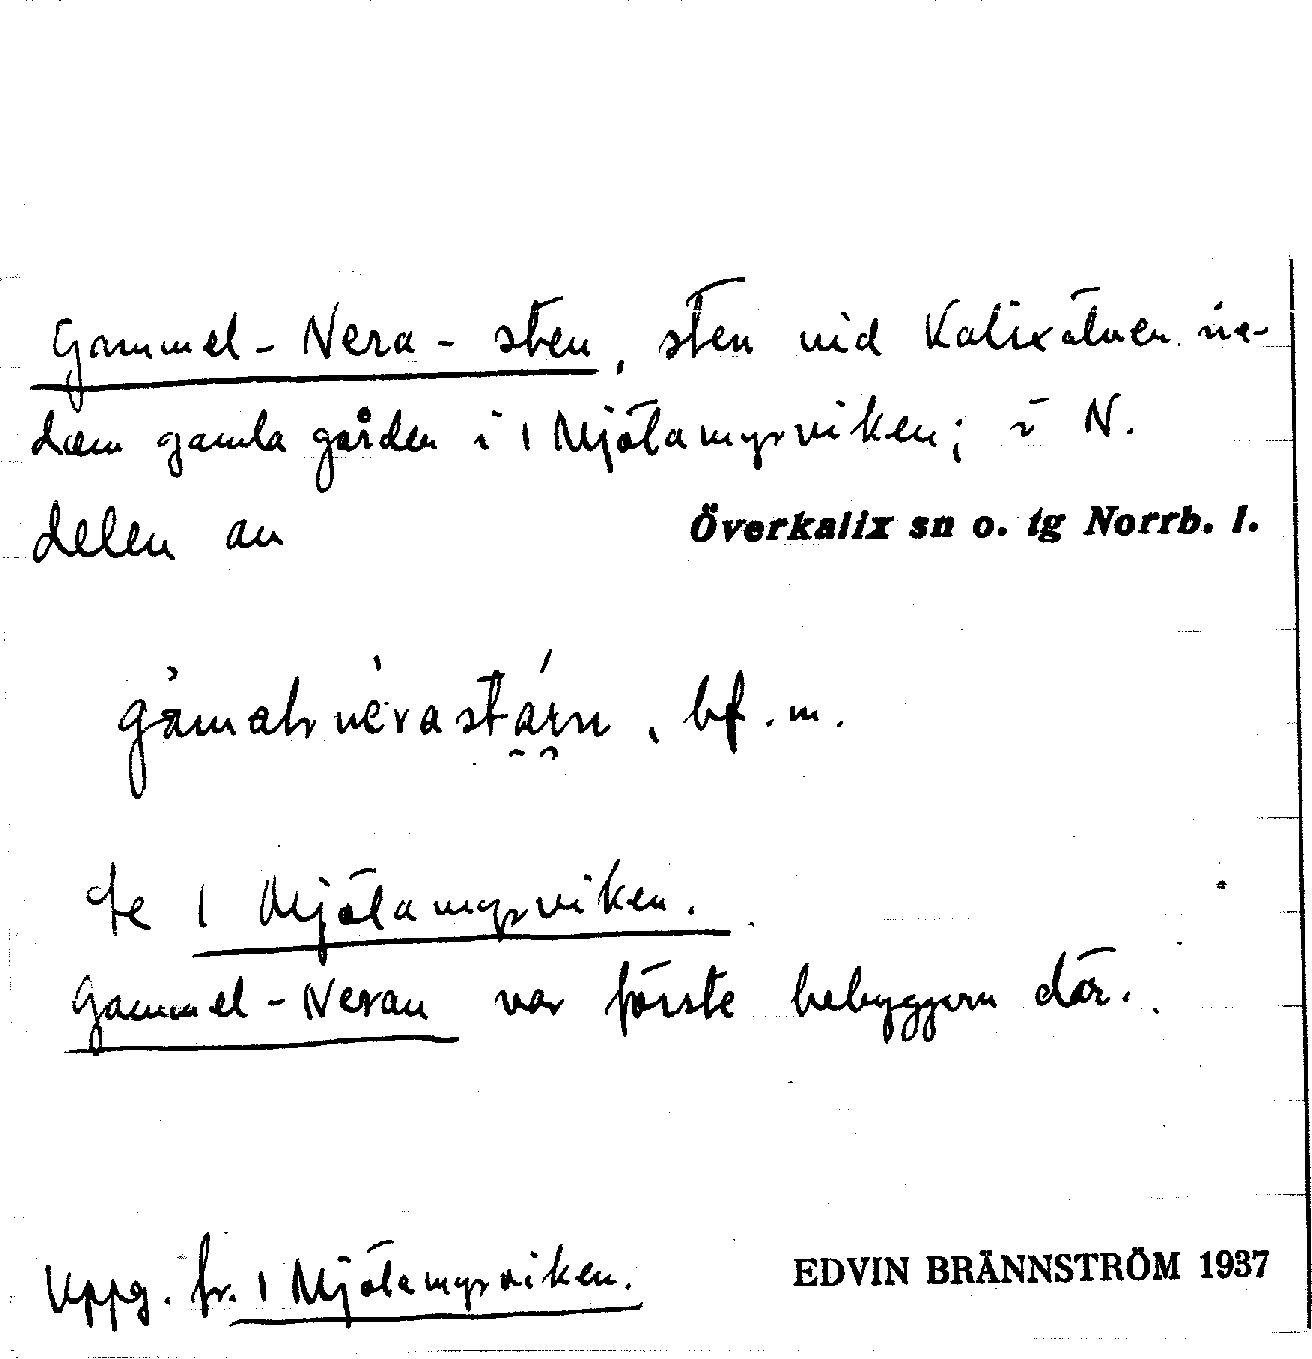 Gammel-Nera-sten, sten vid Kalixälven ne-
dom gamla gården i 1 Mjölamyrviken; i N.
delen av Överkalix sn o. tg Norrb. l.
bf. m.
Se 1 Mjölamyrviken.
Gammel-Neran var förste bebyggarn där.
Uppg. fr. 1 Mjölamyrviken. EDVIN BRÄNNSTRÖM 1937